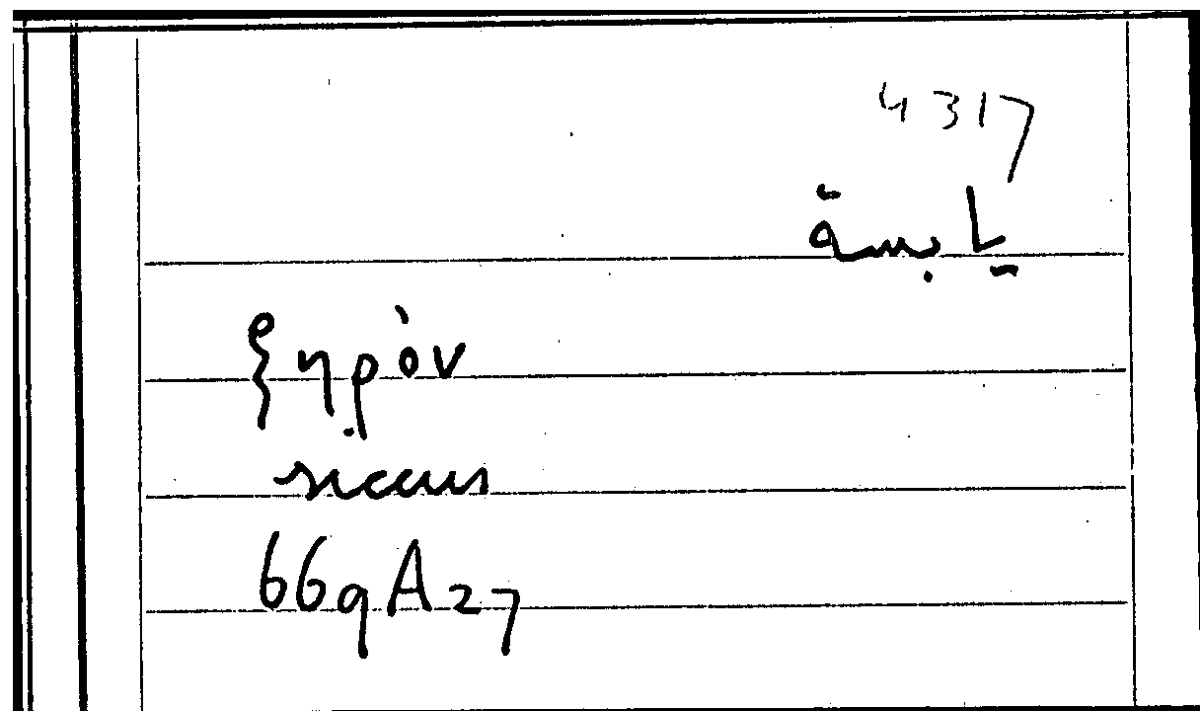 4317
يابسة
ξηρὸν
siccus
669A27